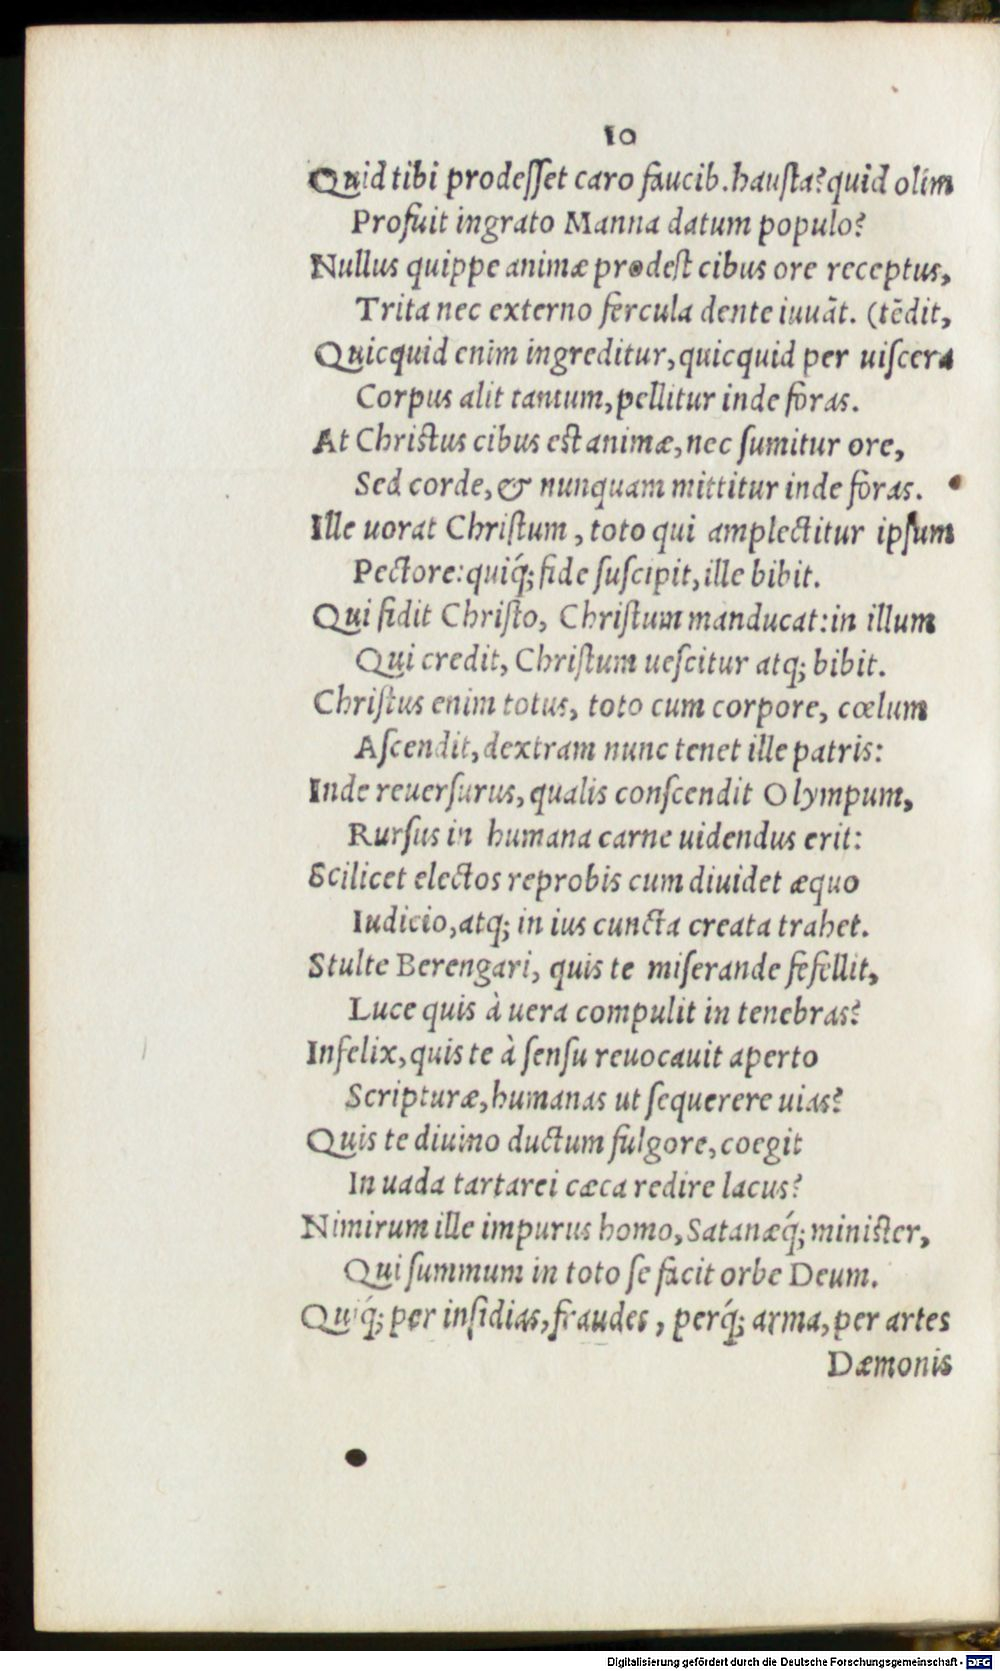 10
Quid tibi prodeſſet caro faucib. hauſta? quid olim
Profuit ingrato Manna datum populo?
Nullus quippe animæ prodeſt cibus ore receptus,
Trita nec externo fercula dente iuuāt. (tēdit,
Quicquid enim ingreditur, quicquid per uiſcera
Corpus alit tantum, pellitur inde foras.
At Chriſtus cibus eſt animæ, nec ſumitur ore,
Sed corde, & nunquam mittitur inde foras.
Ille uorat Chriſtum, toto qui amplectitur ipſum
Pectore: quiq́; fide ſuſcipit, ille bibit.
Qui fidit Chriſto, Chriſtum manducat: in illum
Qui credit, Chriſtum ueſcitur atq; bibit.
Chriſtus enim totus, toto cum corpore, cœlum
Aſcendit, dextram nunc tenet ille patris:
Inde reuerſurus, qualis conſcendit Olympum,
Rurſus in humana carne uidendus erit:
Scilicet electos reprobis cum diuidet æquo
Iudicio, atq; in ius cuncta creata trahet.
Stulte Berengari, quis te miſerande fefellit,
Luce quis à uera compulit in tenebras?
Infelix, quis te à ſenſu reuocauit aperto
Scripturæ, humanas ut ſequerere uias?
Quis te diuino ductum fulgore, coegit
In uada tartarei cæca redire lacus?
Nimirum ille impurus homo, Satanæq́; miniſter,
Qui ſummum in toto ſe facit orbe Deum.
Quiq́; per inſidias, fraudes, perq́; arma, per artes
Dæmonis
Digitalisierung gefördert durch die Deutsche Forschungsgemeinschaft - DFG